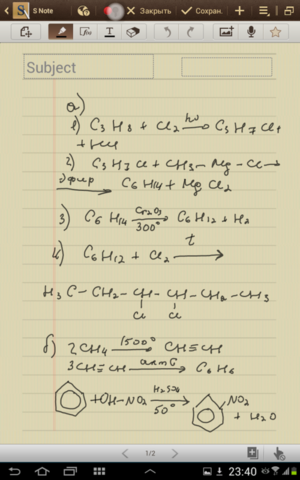 S Note
Закрыть
Сохран.
Subject
а)
1) C3H8 + Cl2 hν→ C3H7Cl
+ HCl
2) C3H7Cl + CH3–Mg–Cl→
эфир→ C6H14 + MgCl2
3) C6H14 Cr2O3→ 300° C6H12 + H2
4) C6H12 + Cl2 t→
H3C–CH2–CH–CH–CH2–CH3
Cl Cl
б) 2CH4 1500°→ CH≡CH
3CH≡CH акт C→ C6H6
+OH–NO2 H2SO4→ 50° NO2
+ H2O
1/2
23:40